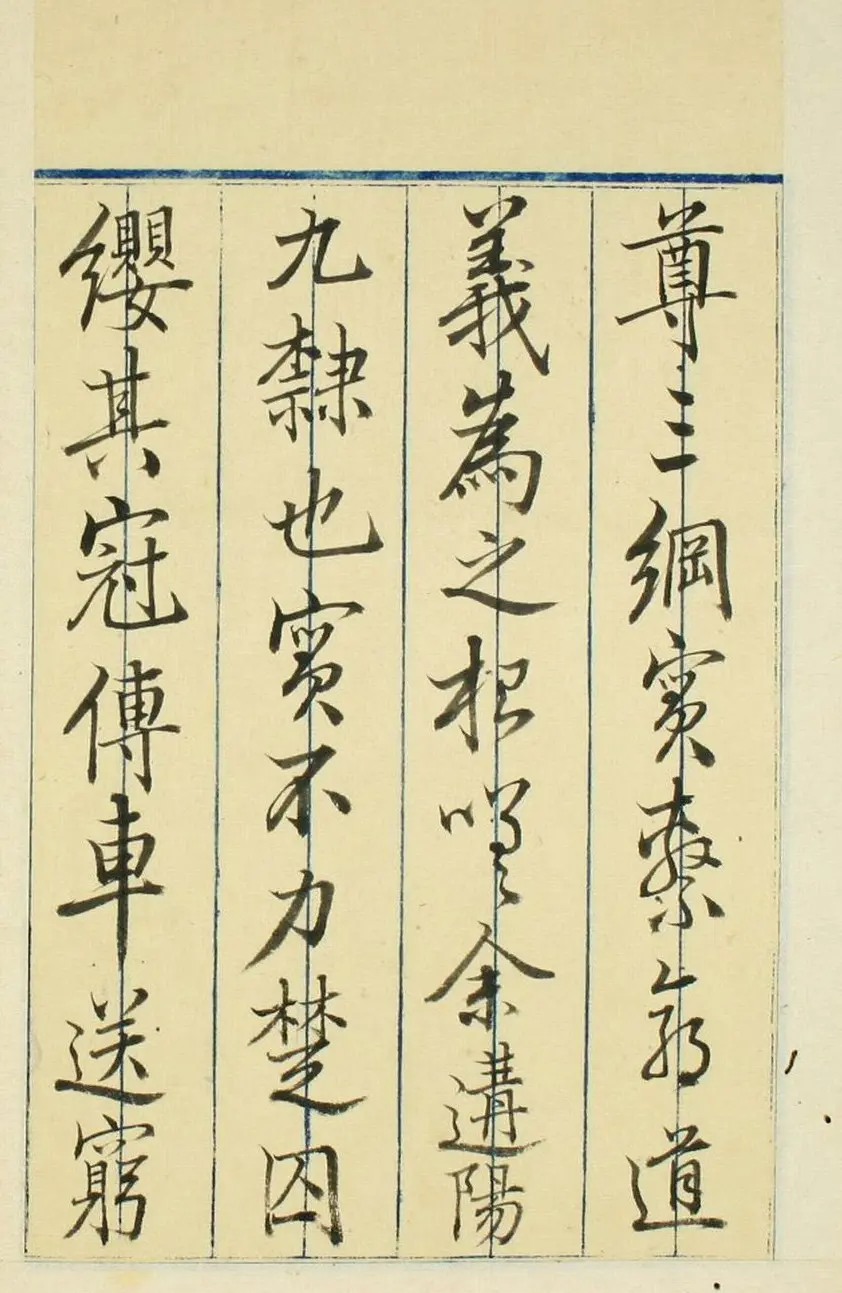 尊三綱實繫命道
義為之根嗟余遘陽
九隸也實不力楚囚
纓其冠傳車送窮